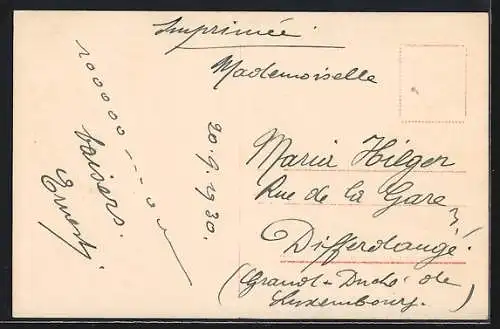 Imprimée
Mademoiselle
100000.....0
baisers.
Ernest.
20.9.1930.
Maria Hilger
Rue de la Gare
Differdange!
(Grand-Duché de
Luxembourg.)